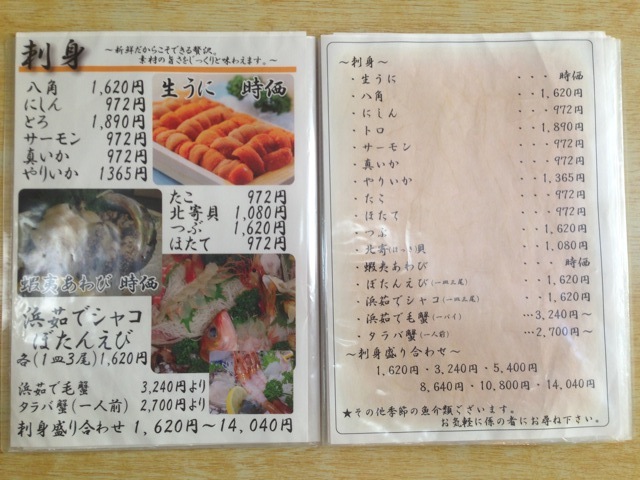 刺身
～新鮮だからこそできる贅沢。
素材の旨さをじっくりと味わえます。～
八角 1,620円
にしん 972円
とろ 1,890円
サーモン 972円
真いか 972円
やりいか 1365円
生うに 時価
たこ 972円
北寄貝 1,080円
つぶ 1,620円
ほたて 972円
蝦夷あわび 時価
浜茹でシャコ
ぼたんえび
各(1皿3尾)1,620円
浜茹で毛蟹 3,240円より
タラバ蟹(一人前) 2,700円より
刺身盛り合わせ 1,620円～14,040円
～刺身～
・生うに ・・・ 時価
・八角 ・・・1,620円
・にしん ・・・972円
・トロ ・・・1,890円
・サーモン ・・・972円
・真いか ・・・972円
・やりいか ・・・1,365円
・たこ ・・・972円
・ほたて ・・・972円
・つぶ ・・・1,620円
・北寄(ほっき)貝 ・・・1,080円
・蝦夷あわび ・・・ 時価
・ぼたんえび(一皿三尾) ・・・1,620円
・浜茹でシャコ(一皿三尾) ・・・1,620円
・浜茹で毛蟹(一パイ) …3,240円～
・タラバ蟹(一人前) …2,700円～
～刺身盛り合わせ～
1,620円・3,240円・5,400円
8,640円・10,800円・14,040円
★その他季節の魚介類ございます。
お気軽に係の者にお尋ね下さい。